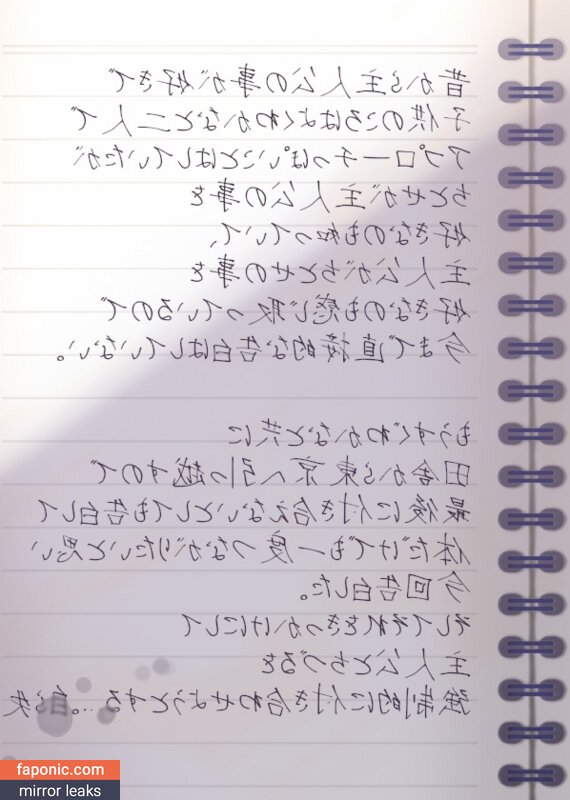 昔から主人公の事が好きで
子供のころはよくわかなと二人で
アプローチっぽいことはしていたが
ちとせが主人公の事を
好きなのも知っていて、
主人公がちとせの事を
好きなのも感じ取っているので
今まで直接的な告白はしていない。
もうすぐわかなと共に
田舎から東京へ引っ越すので
最後に付き合えないとしても告白して
体だけでも一度つながりたいと思い
今回告白した。
そしてそれをきっかけにして
主人公とちづるを
強制的に付き合わせようとする…。自ら失
faponic.com
mirror leaks